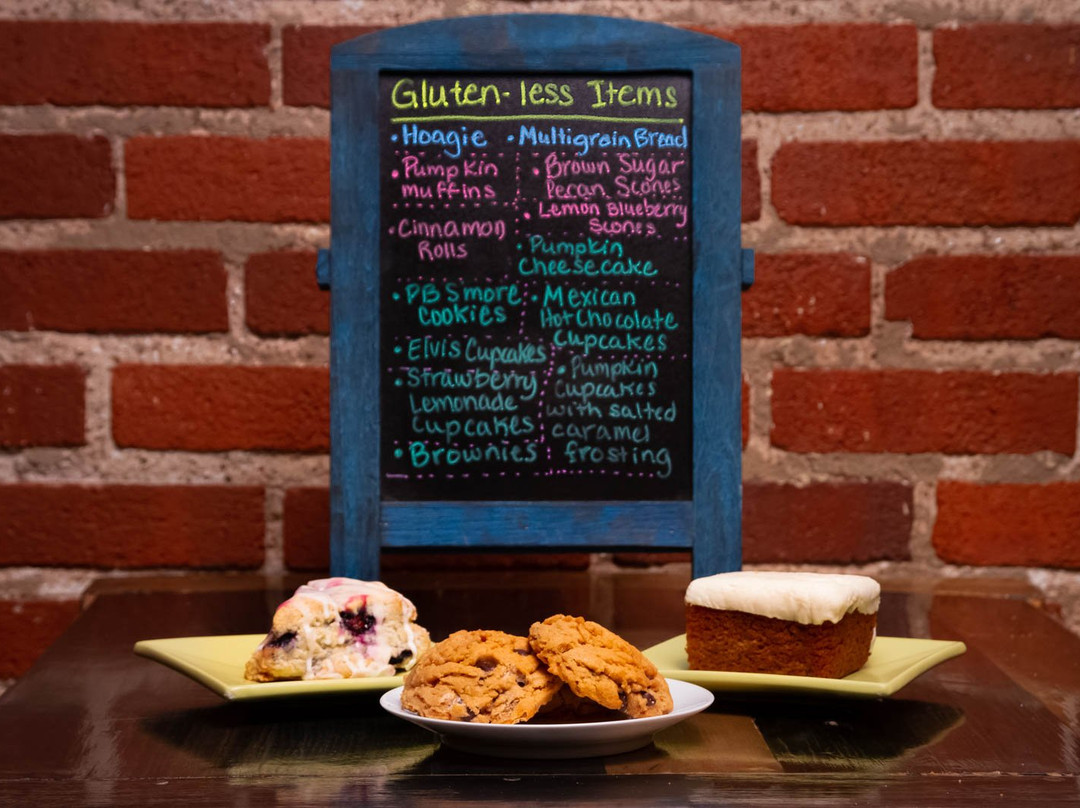 Gluten-less Items
•Hoagie •Multigrain Bread
•Pumpkin
muffins
•Brown Sugar
Pecan Scones
•Cinnamon
Rolls
•Lemon Blueberry
Scones
•Pumpkin
Cheesecake
•PB S'more
cookies
•Mexican
Hot Chocolate
Cupcakes
•Elvis Cupcakes
•Strawberry
Lemonade
Cupcakes
•Brownies
•Pumpkin
Cupcakes
with salted
caramel
frosting